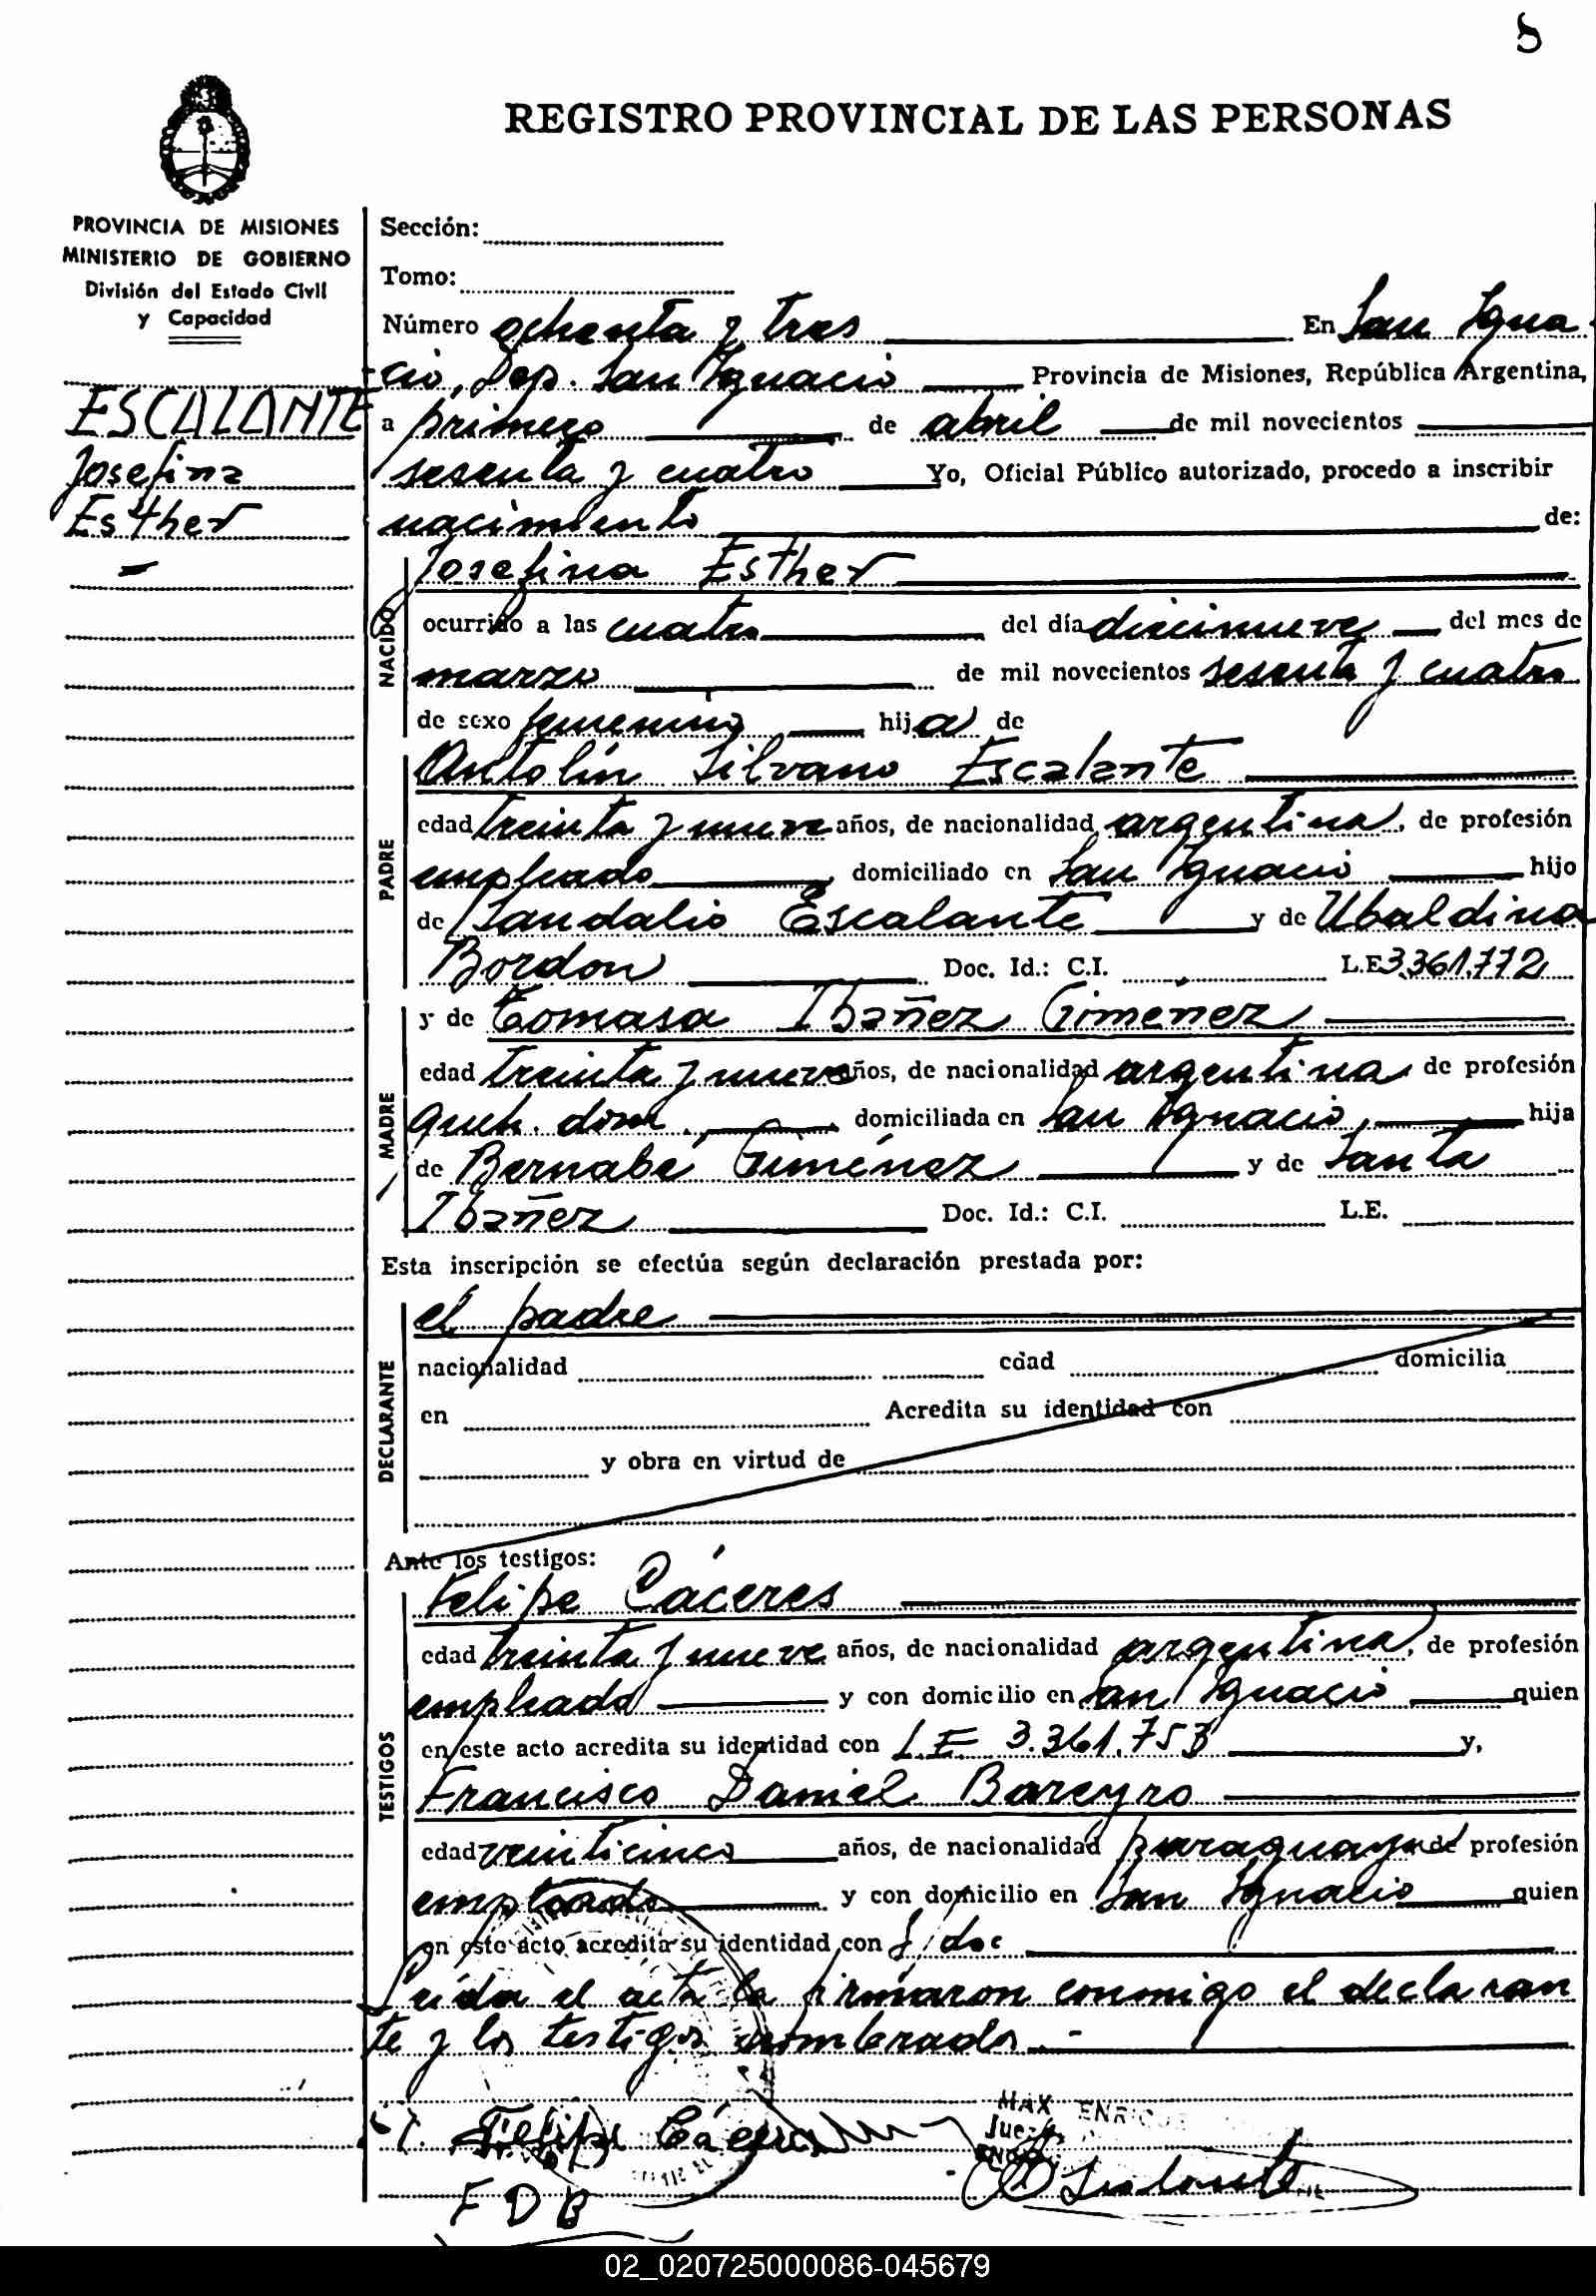 8
REGISTRO PROVINCIAL DE LAS PERSONAS
PROVINCIA DE MISIONES
MINISTERIO DE GOBIERNO
División del Estado Civil
y Capacidad
ESCALANTE
Josefina
Esther
Sección:
Tomo:
Número ochenta y tres En San Igna
cio, Dep. San Ignacio Provincia de Misiones, República Argentina,
a primero de abril de mil novecientos
sesenta y cuatro Yo, Oficial Público autorizado, procedo a inscribir
nacimiento de:
NACIDO
Josefina Esther
ocurrido a las cuatro del día diecinueve del mes de
marzo de mil novecientos sesenta y cuatro
de sexo femenino hija de
PADRE
Antolín Silvano Escalante
edad treinta y nueve años, de nacionalidad argentina, de profesión
empleado domiciliado en San Ignacio hijo
de Sandalio Escalante y de Ubaldina
Bordon Doc. Id.: C.I. L.E. 3.361.772
MADRE
y de Tomasa Ibañez Gimenez
edad treinta y nueve años, de nacionalidad argentina de profesión
queh. dom. domiciliada en San Ignacio, hija
de Bernabé Giménez y de Santa
Ibañez Doc. Id.: C.I. L.E.
Esta inscripción se efectúa según declaración prestada por:
DECLARANTE
el padre
nacionalidad edad domicilia
en Acredita su identidad con
y obra en virtud de
Ante los testigos:
TESTIGOS
Felipe Cáceres
edad treinta y nueve años, de nacionalidad argentina, de profesión
empleado y con domicilio en San Ignacio quien
en este acto acredita su identidad con L.E. 3.361.753 y,
Francisco Daniel Bareyro
edad veinticinco años, de nacionalidad paraguaya de profesión
empleado y con domicilio en San Ignacio quien
en este acto acredita su identidad con S/doc
Leída el acta la firmaron conmigo el declaran
te y los testigos nombrados.-
MAX ENRIQ
Juez
Felipe Cáceres
Escalante
F D B
02_020725000086-045679